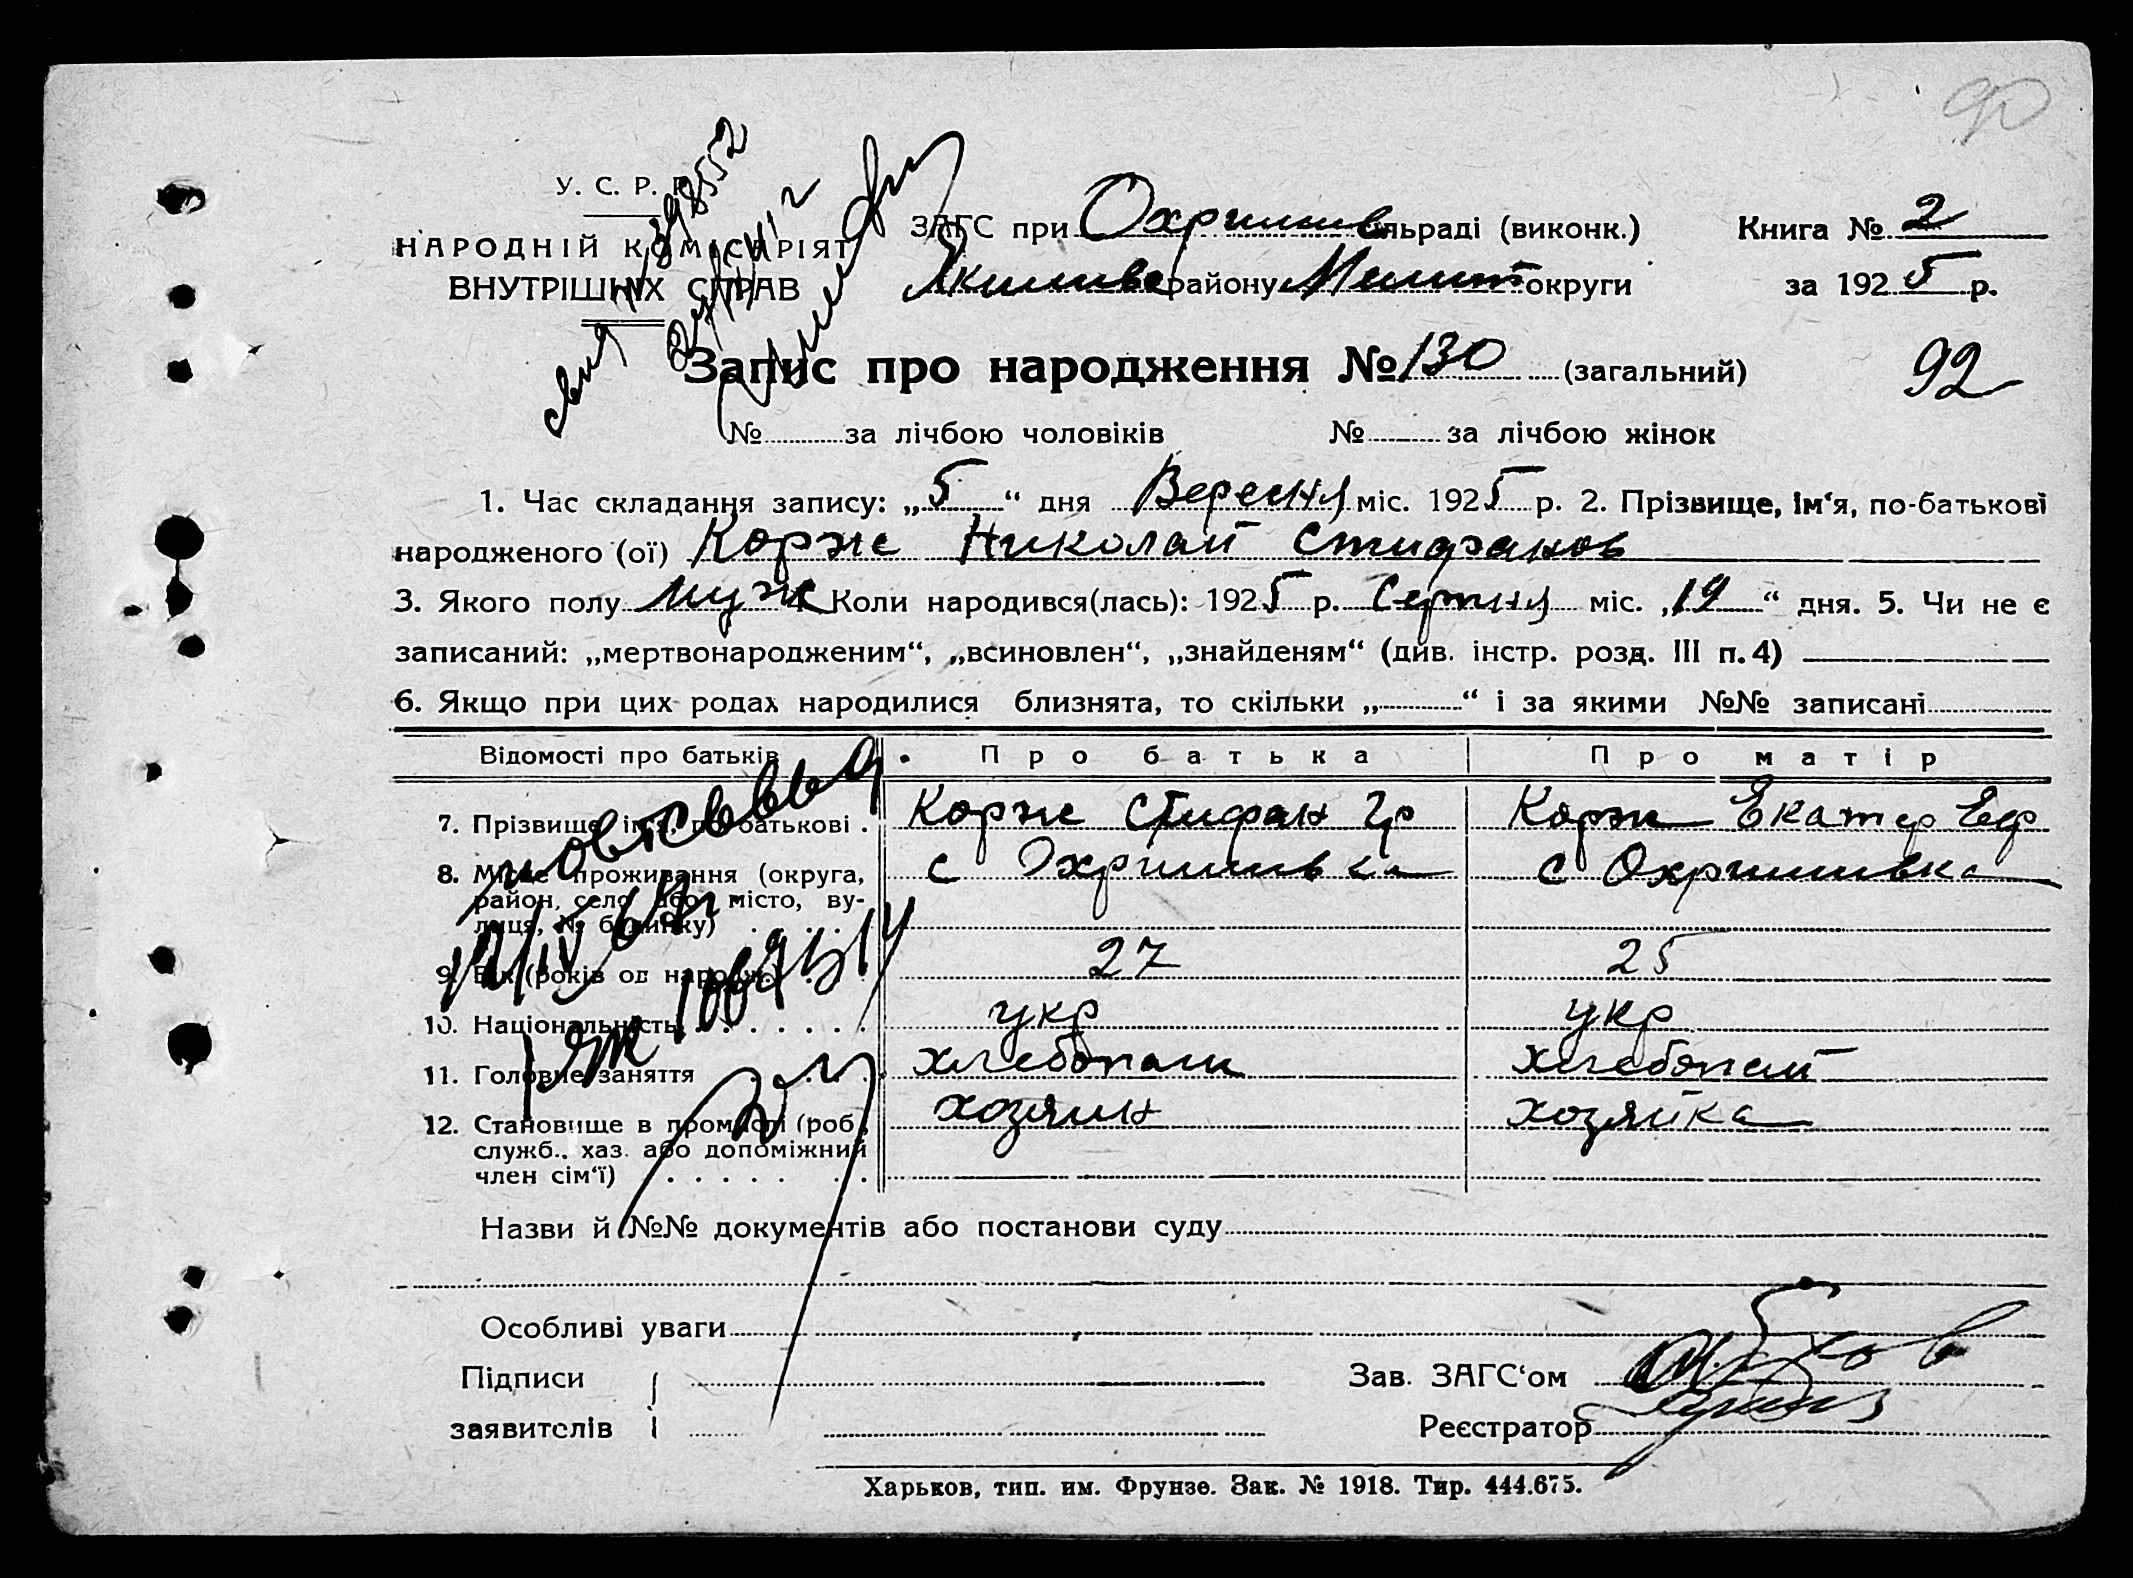 90
У. С. Р. Р.
НАРОДНІЙ КОМІСАРІЯТ
ВНУТРІШНІХ СПРАВ
ЗАГС при Охримів сільраді (виконк.) Книга № 2
Якимівс району Мелит округи за 1925 р.
Запис про народження № 130 (загальний) 92
№ за лічбою чоловіків № за лічбою жінок
1. Час складання запису: „5“ дня Вересня міс. 1925 р. 2. Прізвище, ім‘я, по-батькові
народженого (ої) Корже Николай Стифанов
3. Якого полу муж 4. Коли народився(лась): 1925 р. Серпня міс. „19“ дня. 5. Чи не є
записаний: „мертвонародженим“, „всиновлен“, „знайденям“ (див. інстр. розд. III п. 4)
6. Якщо при цих родах народилися близнята, то скільки „ “ і за якими №№ записані
Відомості про батьків Про батька Про матір
7. Прізвище, ім‘я, по батькові . Корже Стифан Гр Корж Екатер Еф
8. Місце проживання (округа, с Охримівка с Охримивка
район, село або місто, ву-
лиця, № будинку)
9. Вік (років од народж.) 27 25
10. Національність укр укр
11. Головне заняття хлебопаш хлебопаш
12. Становище в промислі (роб., хозяин хозяйка
служб., хаз. або допоміжний
член сім‘ї)
Назви й №№ документів або постанови суду
Особливі уваги
Підписи Зав. ЗАГС‘ом
заявителів Реєстратор
Харьков, тип. им. Фрунзе. Зак. № 1918. Тир. 444.675.